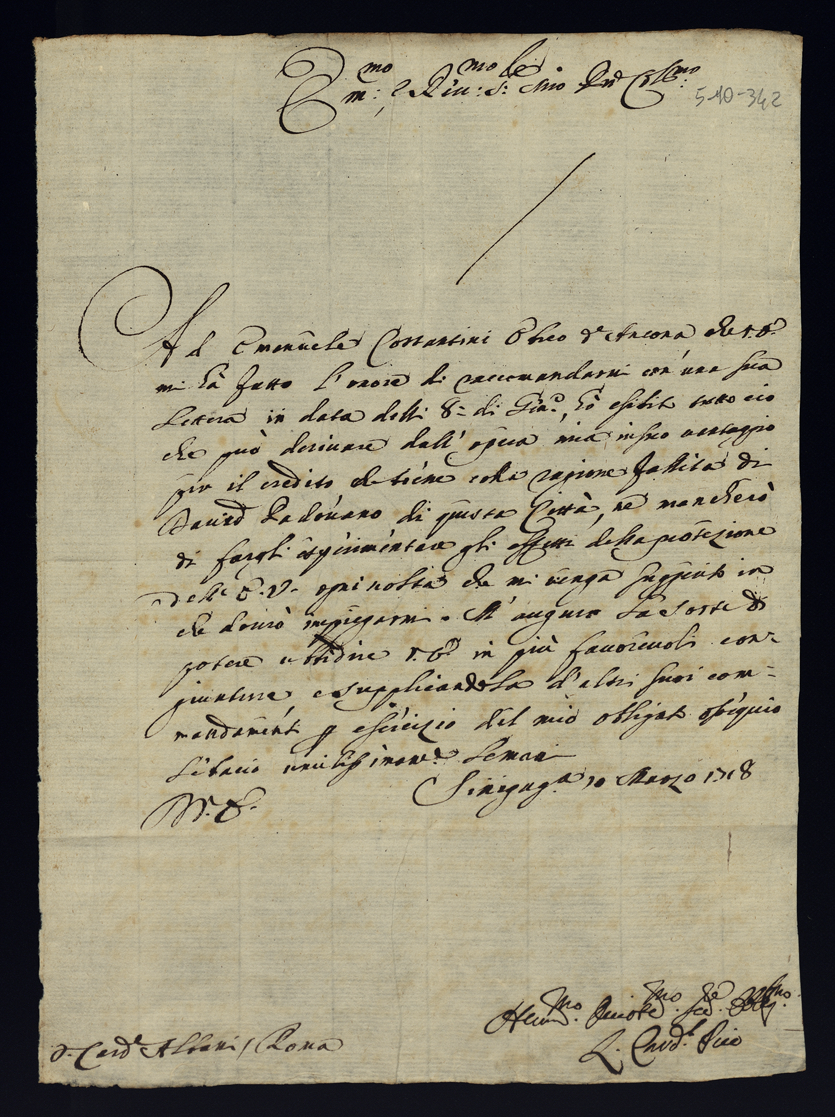 Em:mo e Rev:mo S:re Mio Pne Col:mo
5-10-342
Ad Emanuele Costantini Ebreo d'Ancona che V. E.
mi hà fatto l'onore di raccomandarmi con una sua
lettera in data delli 8 di hò esibito tutto ciò
che può derivare dall'opera mia in suo vantaggio
per il credito che tiene colla ragione fallita di
David Padovano di questa Città, nè mancherò
di fargli esperimentare gli effetti della protezione
dell' E. V. ogni volta che mi venga suggerito in
che dovrò impiegarmi. M'auguro la sorte di
potere ubbidire V. E. in più favorevoli con-
giunture e supplicandola d'altri suoi com-
mandamenti p esercizio del mio obligat ossequio
le bacio umilissimame le mani
Sinigag:a 10 Marzo 1718
V. E.
Hum:mo Devot:mo Ser:re
L. Card:l Pico
S. Card:e Albani / Roma